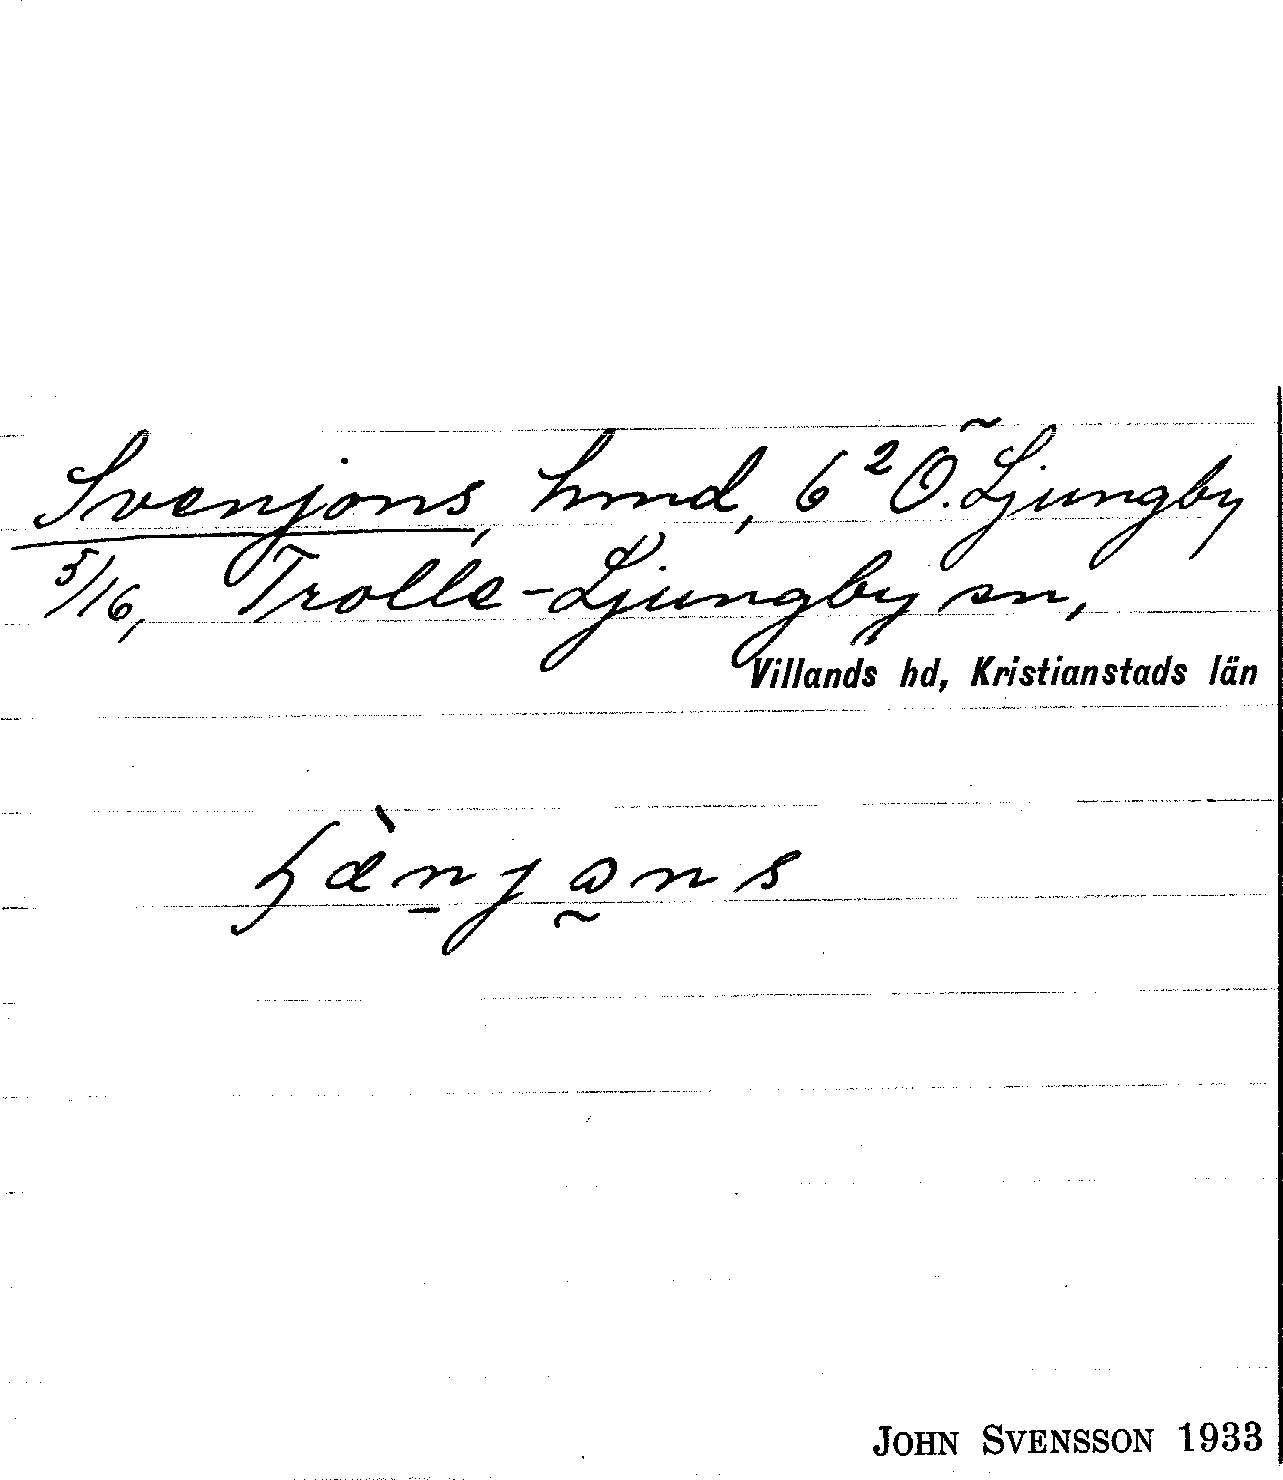 Svenjons, hmd, 6² Ö. Ljungby
5/16, Trolle-Ljungby sn,
Villands hd, Kristianstads län
JOHN SVENSSON 1933